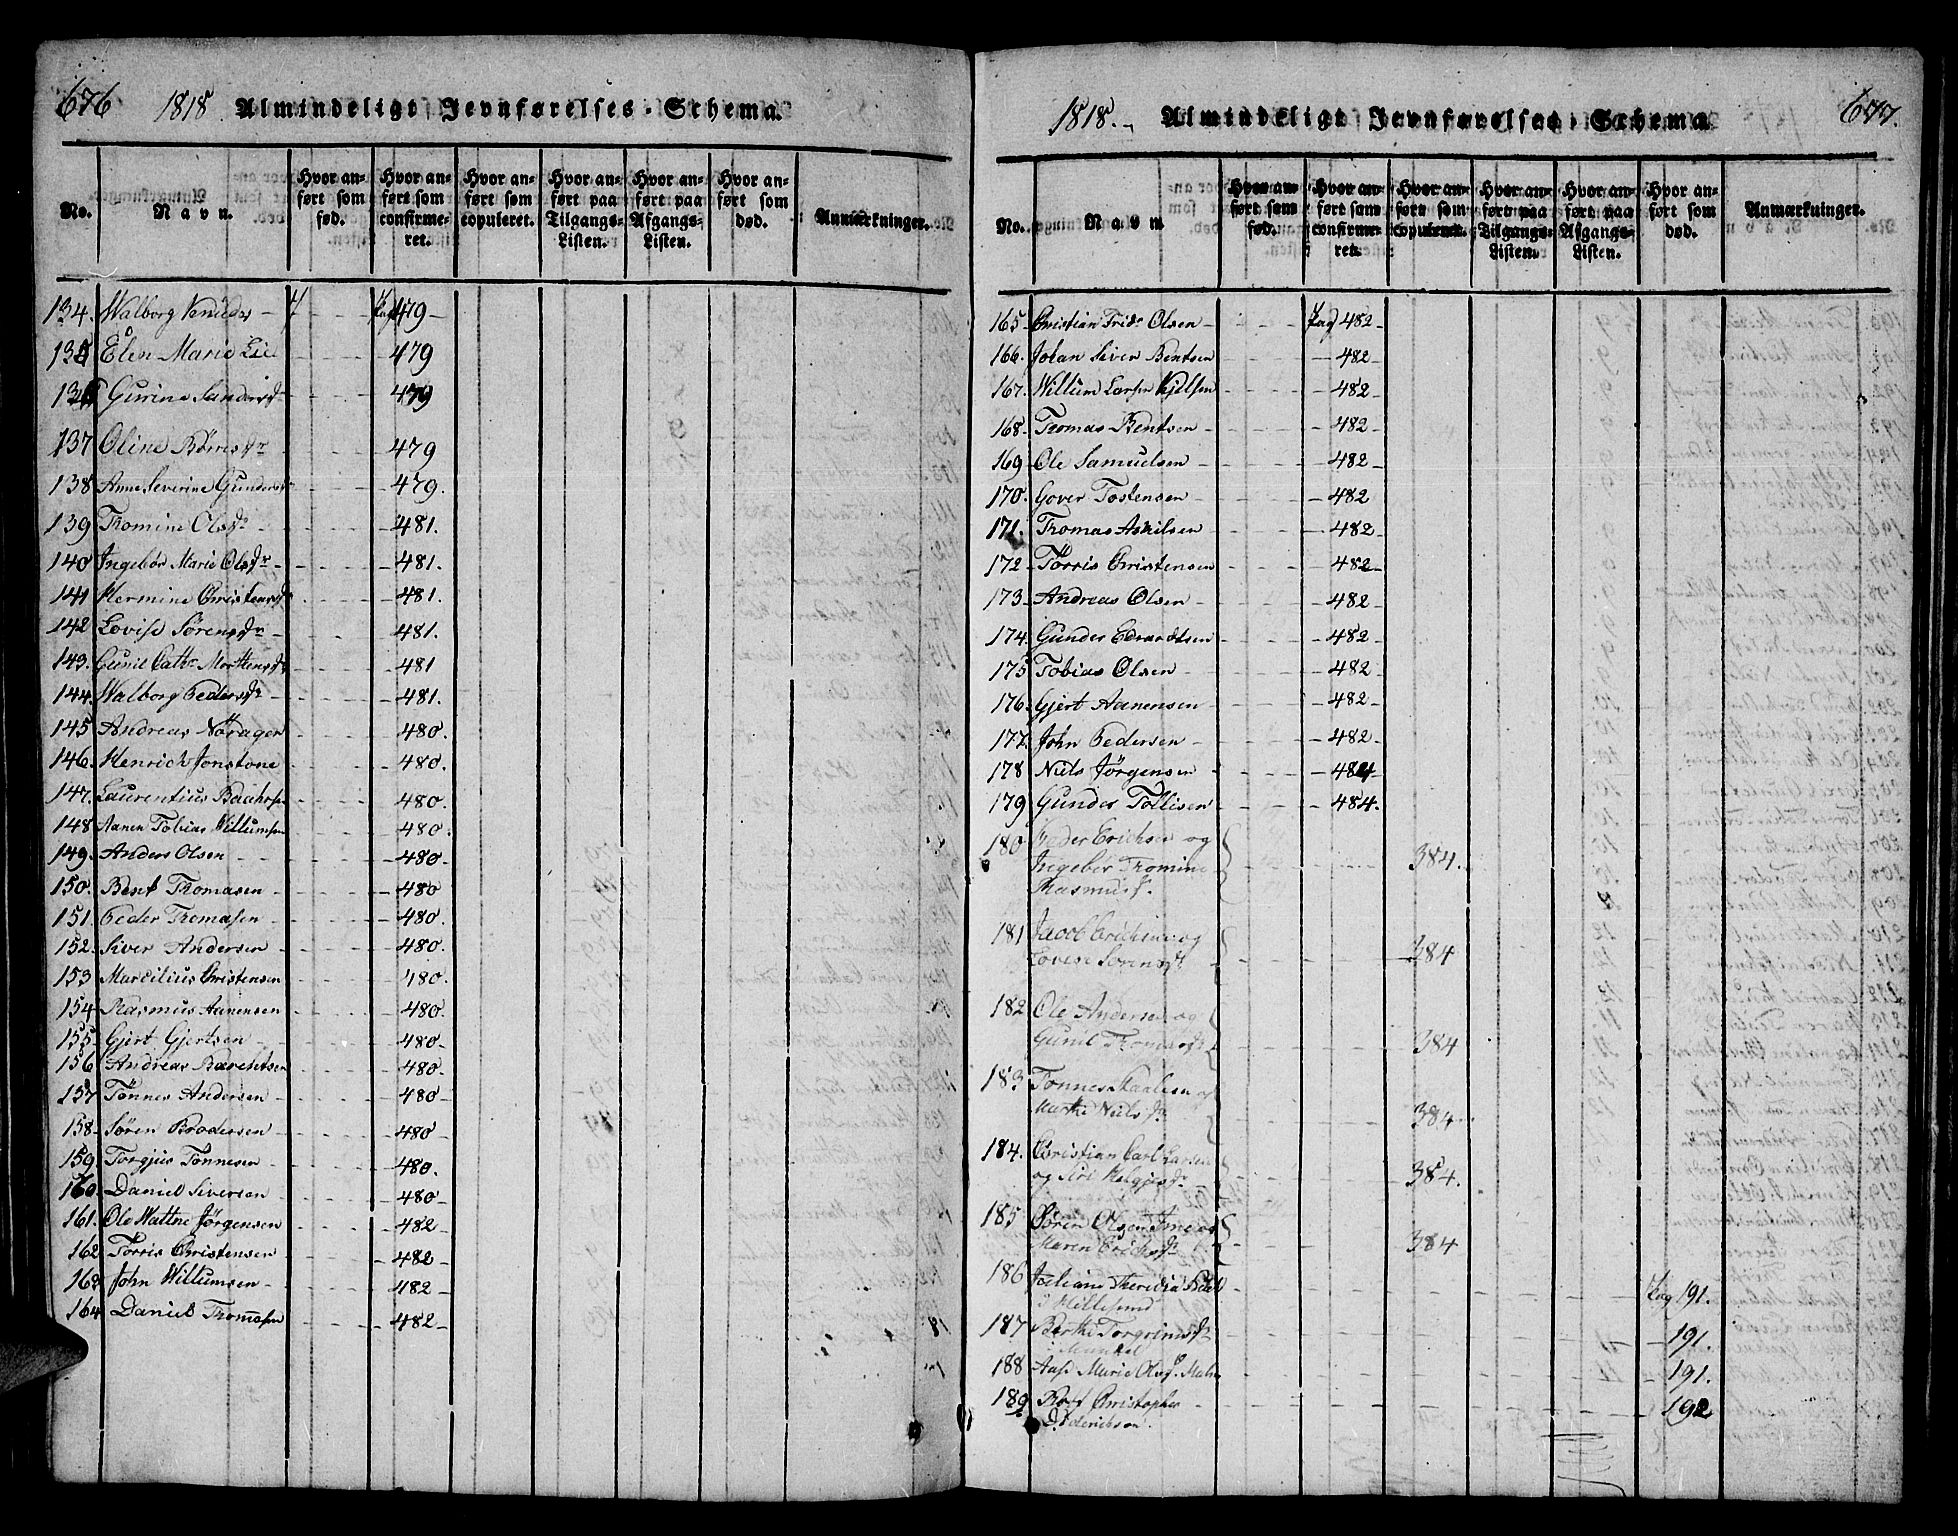 676 1818 Almindeligt Jevnførelses-Schema.
No. Navn. Hvor anført som fød. Hvor anført som confirmeret. Hvor anført som copuleret. Hvor anført paa Tilgangs-Listen. Hvor anført paa Afgangs-Listen. Hvor anført som død. Anmærkninger.
134. Walborg Knudsdr 479
135 Elen Marie 479
136 Gurine Sandersdr 479
137 Oline Børresdr 479
138 Anne Severine Gundersdr 479.
139 Tromine Olsdr 481.
140 Ingebør Marie Olsdr 481.
141 Hermine Christensdr 481.
142 Lovise Sørensdr 481.
143. Gunil Cathr Mortensdr 481
144. Walborg Pedersdr 481.
145 Andreas Nørager 480.
146. Henrich Jonstone 480.
147. Laurentius 480.
148 Aanen Tobias Willumsen 480.
149. Anders Olsen 480
150. Bent Thomasen 480
151. Peder Tromasen 480.
152. Siver Andersen 480.
153 Marcilius Christensen 480.
154 Rasmus Aanensen 480.
155 Gjert Gjertsen 480
156 Andreas Barentsen 480
157 Tønnes Andersen 480
158 Søren Brodersen 480
159. Torgjus Tønnesen 480.
160. Daniel Siversen 480
161. Ole Wattne Jørgensen 482
162 Torris Christensen 482
163 John Willumsen 482
164 Daniel Tromasen 482
1818. Almindeligt Jevnførelses-Schema 677.
No. Navn Hvor anført som fød. Hvor anført som confirmeret. Hvor anført som copuleret. Hvor anført paa Tilgangs-Listen. Hvor anført paa Afgangs-Listen. Hvor anført som død. Anmærkninger.
165 Christian Fridr Olsen Pag 482
166. Johan Siver Bentsen 482
167. Willum Larsen 482
168 Tromas Bentsen 482
169 Ole Samuelsen 482
170. Gover Tostensen 482
171. Tromas Askilsen 482
172 Torris Christensen 482
173 Andreas Olsen 482
174. Gunder Edvardtsen 482
175 Tobias Olsen 482
176. Gjert Aanensen 482
177. John Pedersen 482
178 Niels Jørgensen 484
179 Gunder Tollisen 484.
180 Peder Erichsen og
Ingebør Tromine 384.
Rasmusdr.
181 Jacob Erichsen og
Lovise Sørensdr 384
182 Ole Andersen og
Gunil Tromasdr 384
183 Tønnes
Marthe Nielsdr 384
184. Christian Carl Larsen
og Siri Helgjesdr 384.
185 Søren Olsen og
Maren Erichsdr 384
186 Pag 191.
i Hillesund
187 Berthe Torgrimsdr 191.
188 Aase Marie Olsdr 191.
189 Christopher 192
Diderichsen.